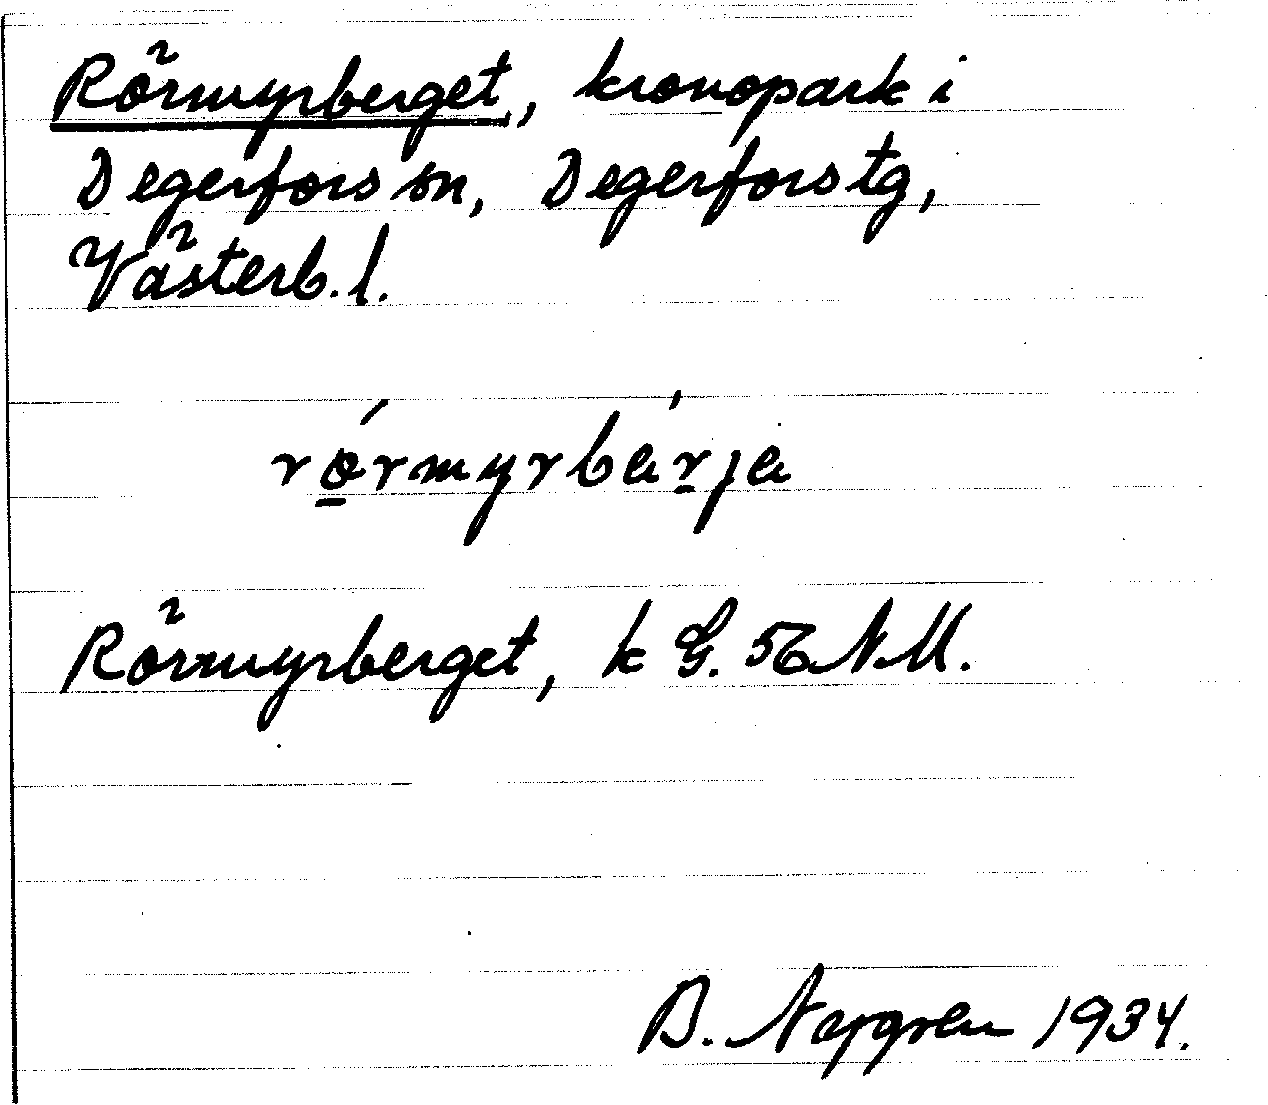 Rörmyrberget, kronopark i
Degerfors sn, Degerfors tg,
Västerb. l.
rö́rmyrbär̲ja
Rörmyrberget, k G. 56 NM.
B. Nygren 1934.